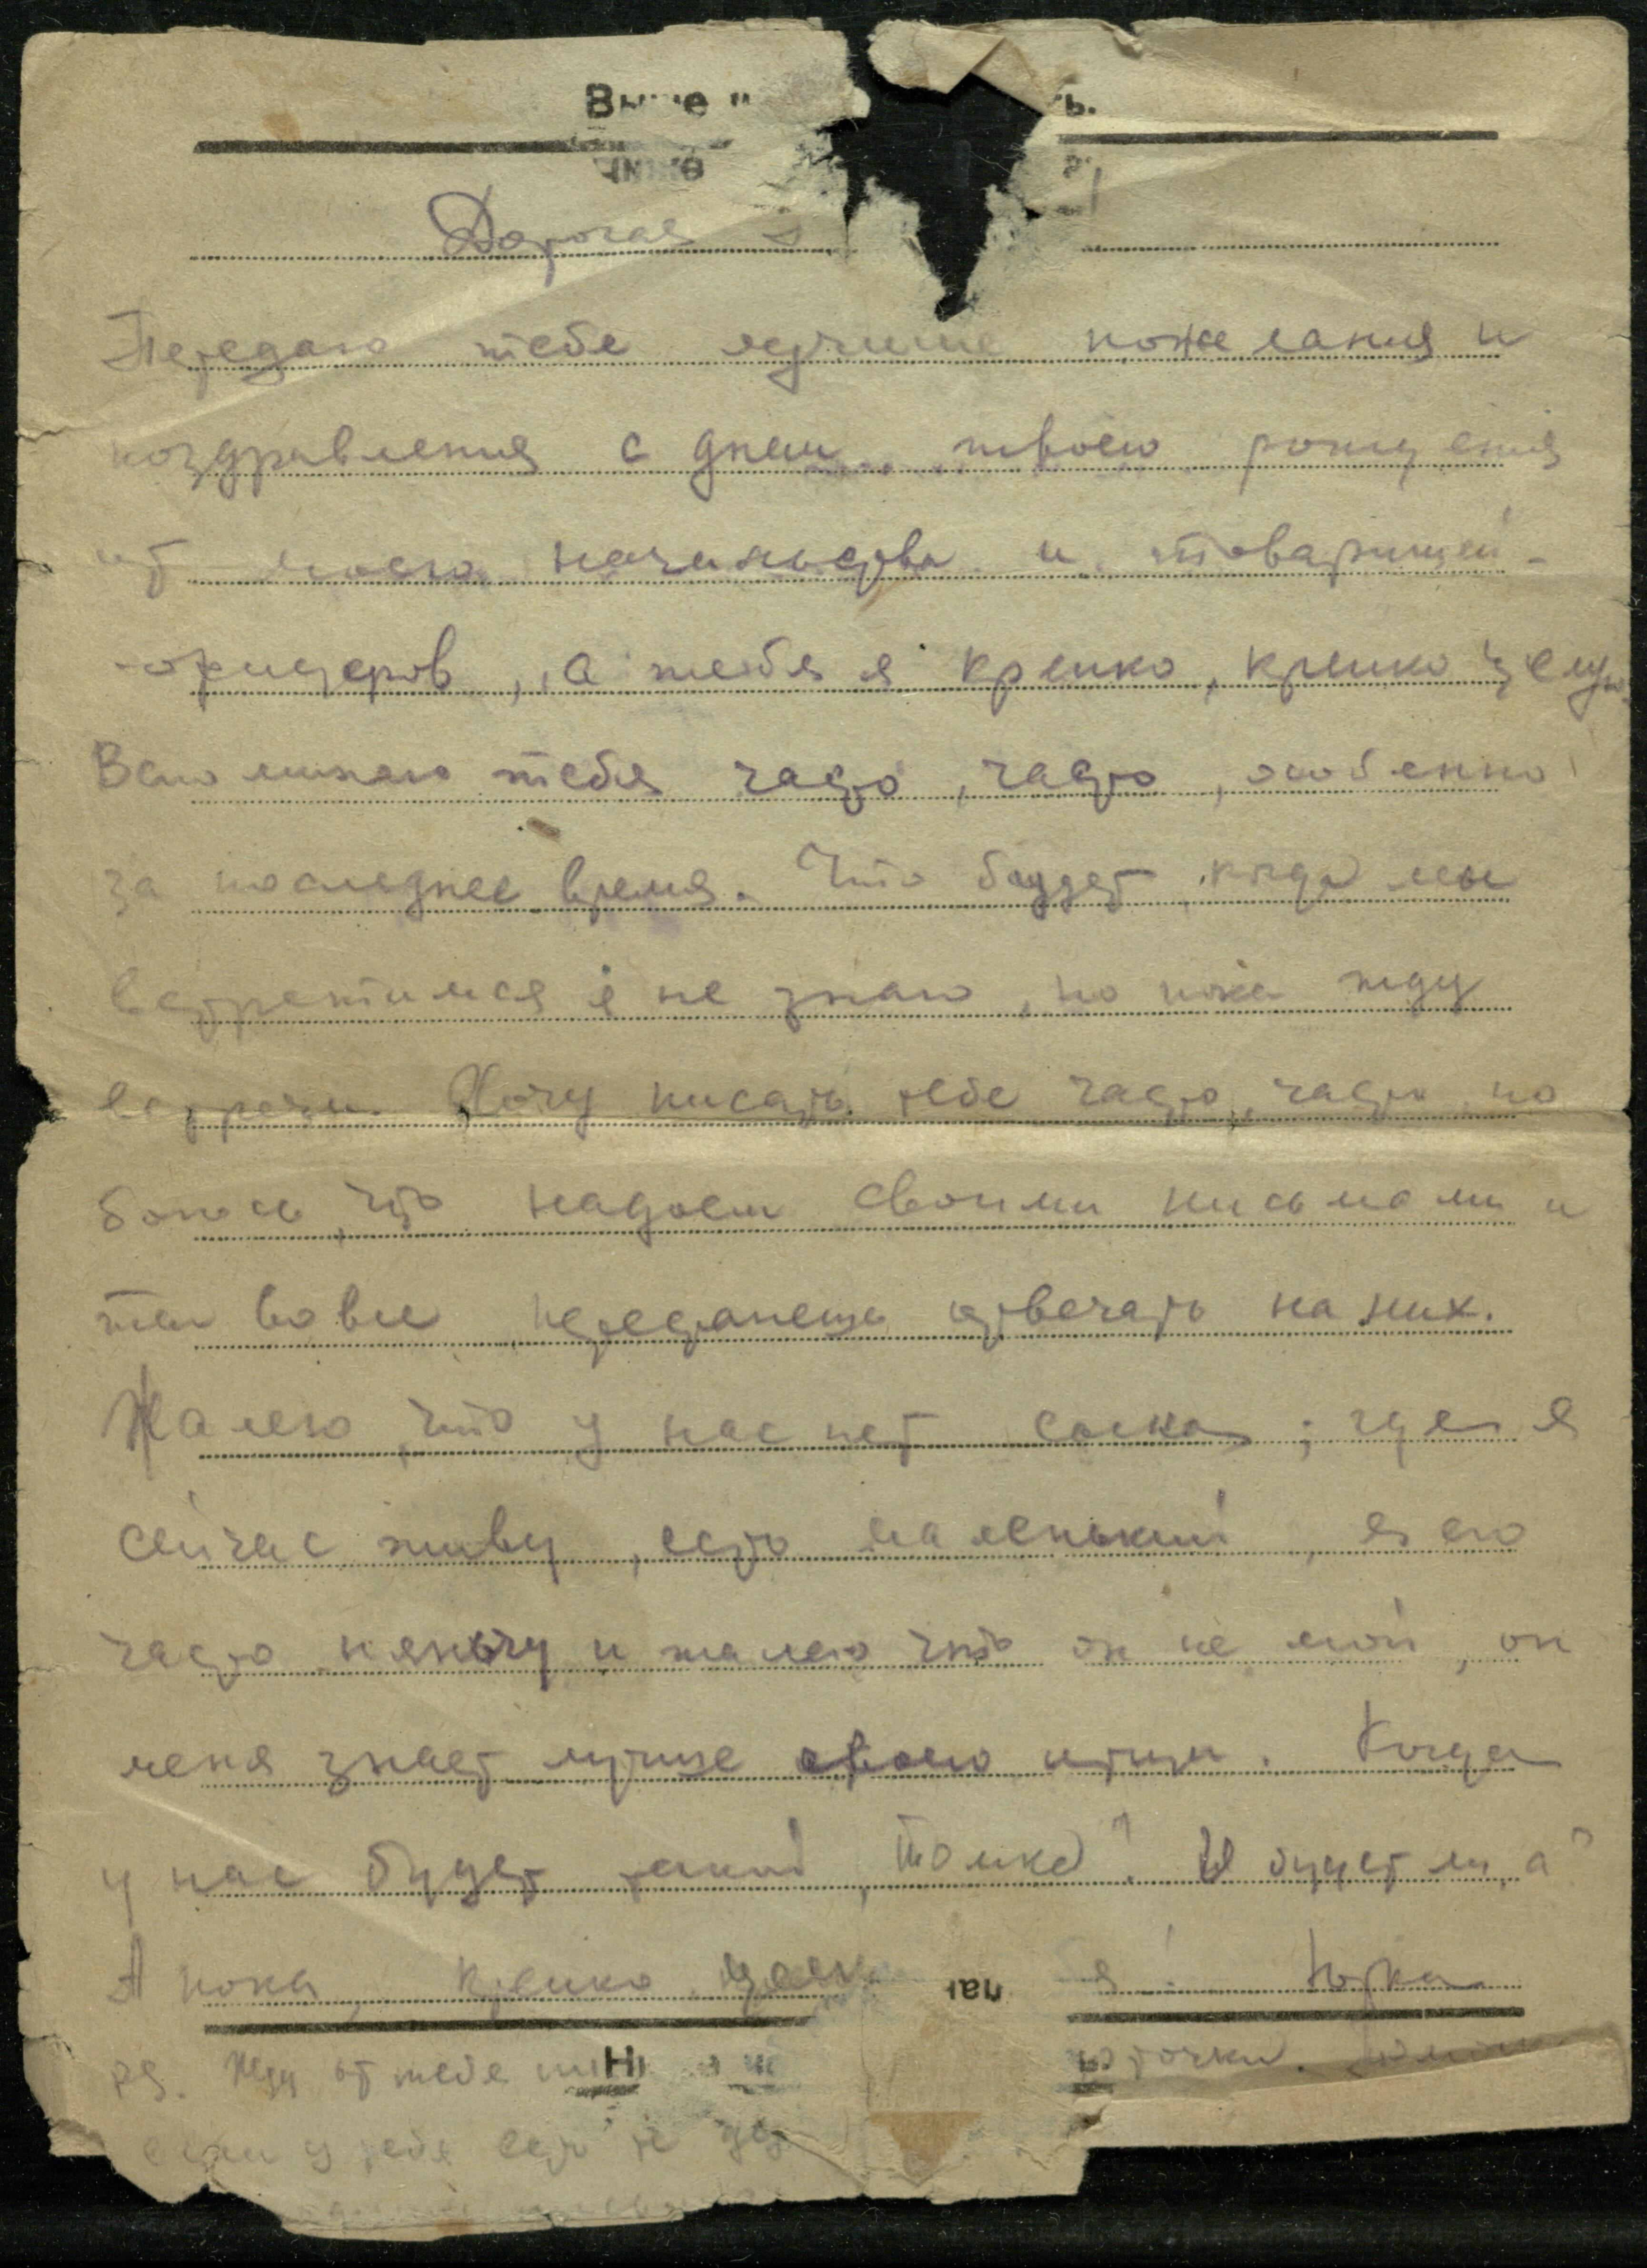 Дорогая
Передаю тебе лучшие пожелания и
поздравления с днем твоего рождения
от моего начальства и товарищей-
-офицеров, а тебя я крепко, крепко целую.
Вспоминаю тебя часто, часто, особенно
за последнее время. Что будет когда мы
встретимся я не знаю, но пока жду
встречи. Хочу писать тебе часто, часто, но
боюсь, что надоем своими письмами и
ты вовсе перестанешь отвечать на них.
Жалею, что у нас нет сынка, где я
сейчас живу, есть маленький, я его
часто няньчу и жалею что он не мой, он
меня знает лучше своего отца. Когда
у нас будет такой, Томка? И будет ли, а?
А пока, крепко Юрка
PS. Жду от тебя точки.
если у тебя есть